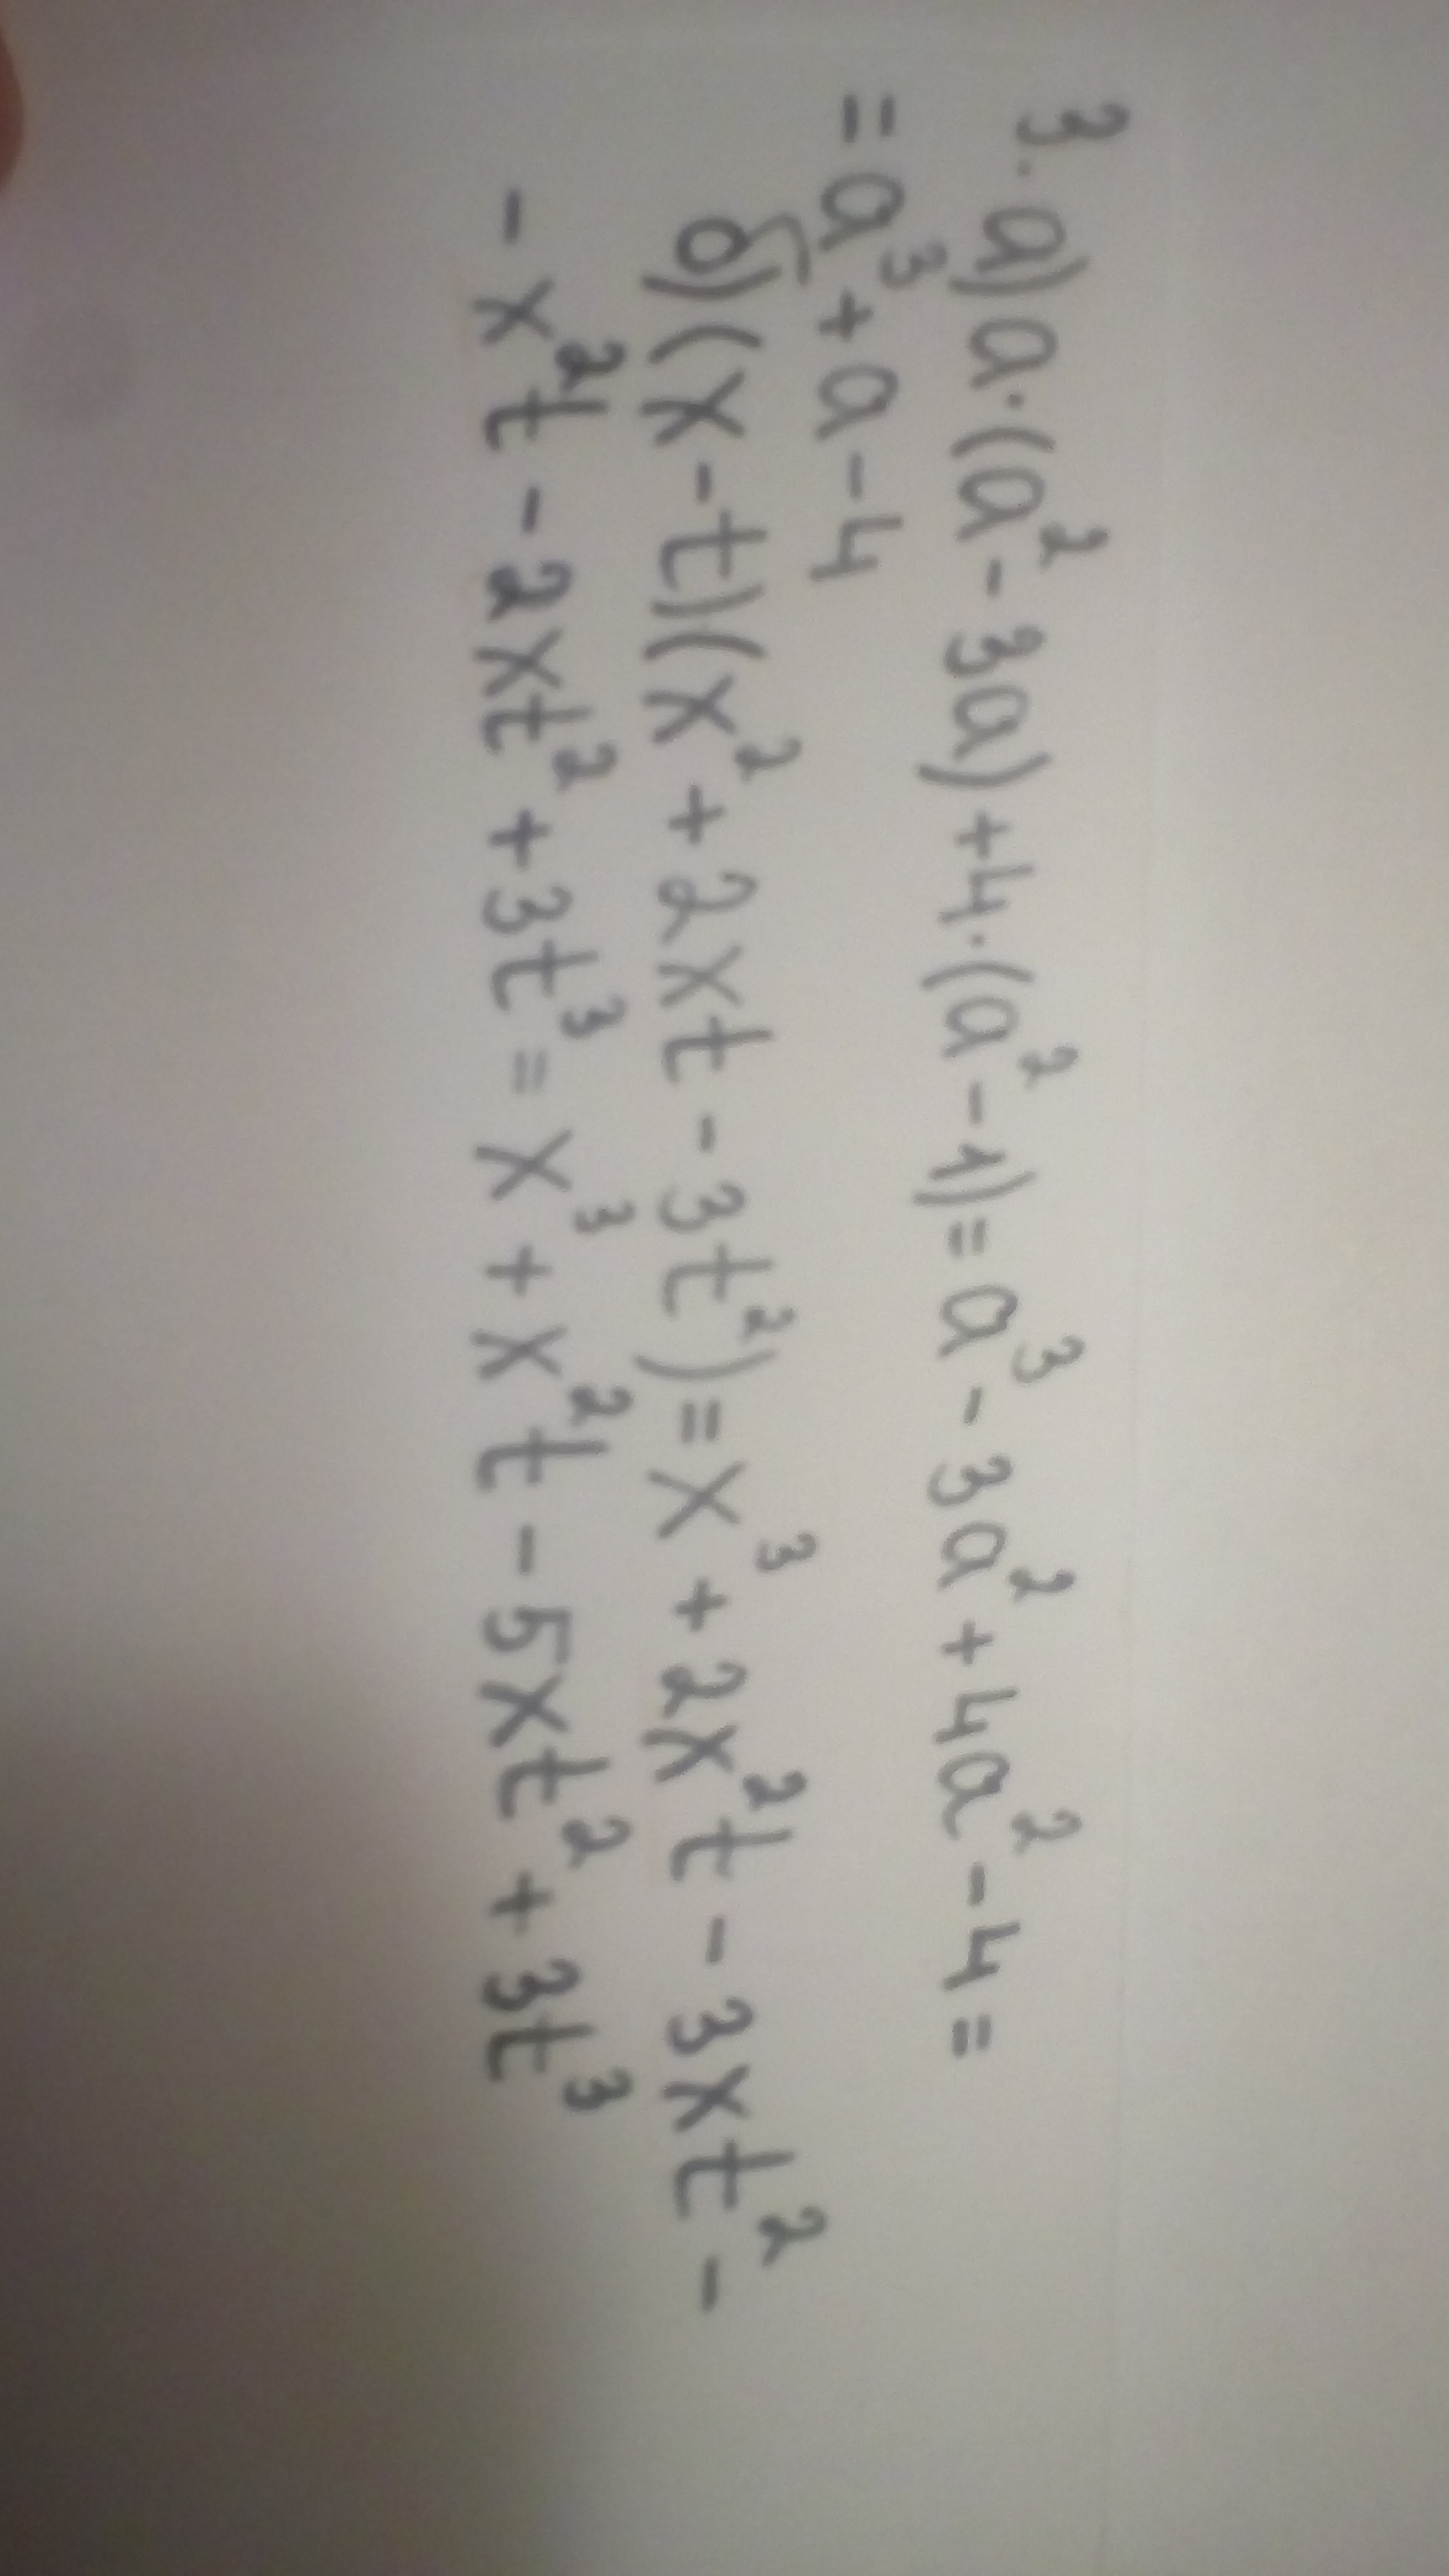 3. а) a·(a² - 3a) + 4·(a² - 1) = a³ - 3a² + 4a² - 4 =
= a³ + a - 4
б) (x - t)(x² + 2xt - 3t²) = x³ + 2x²t - 3xt² -
- x²t - 2xt² + 3t³ = x³ + x²t - 5xt² + 3t³